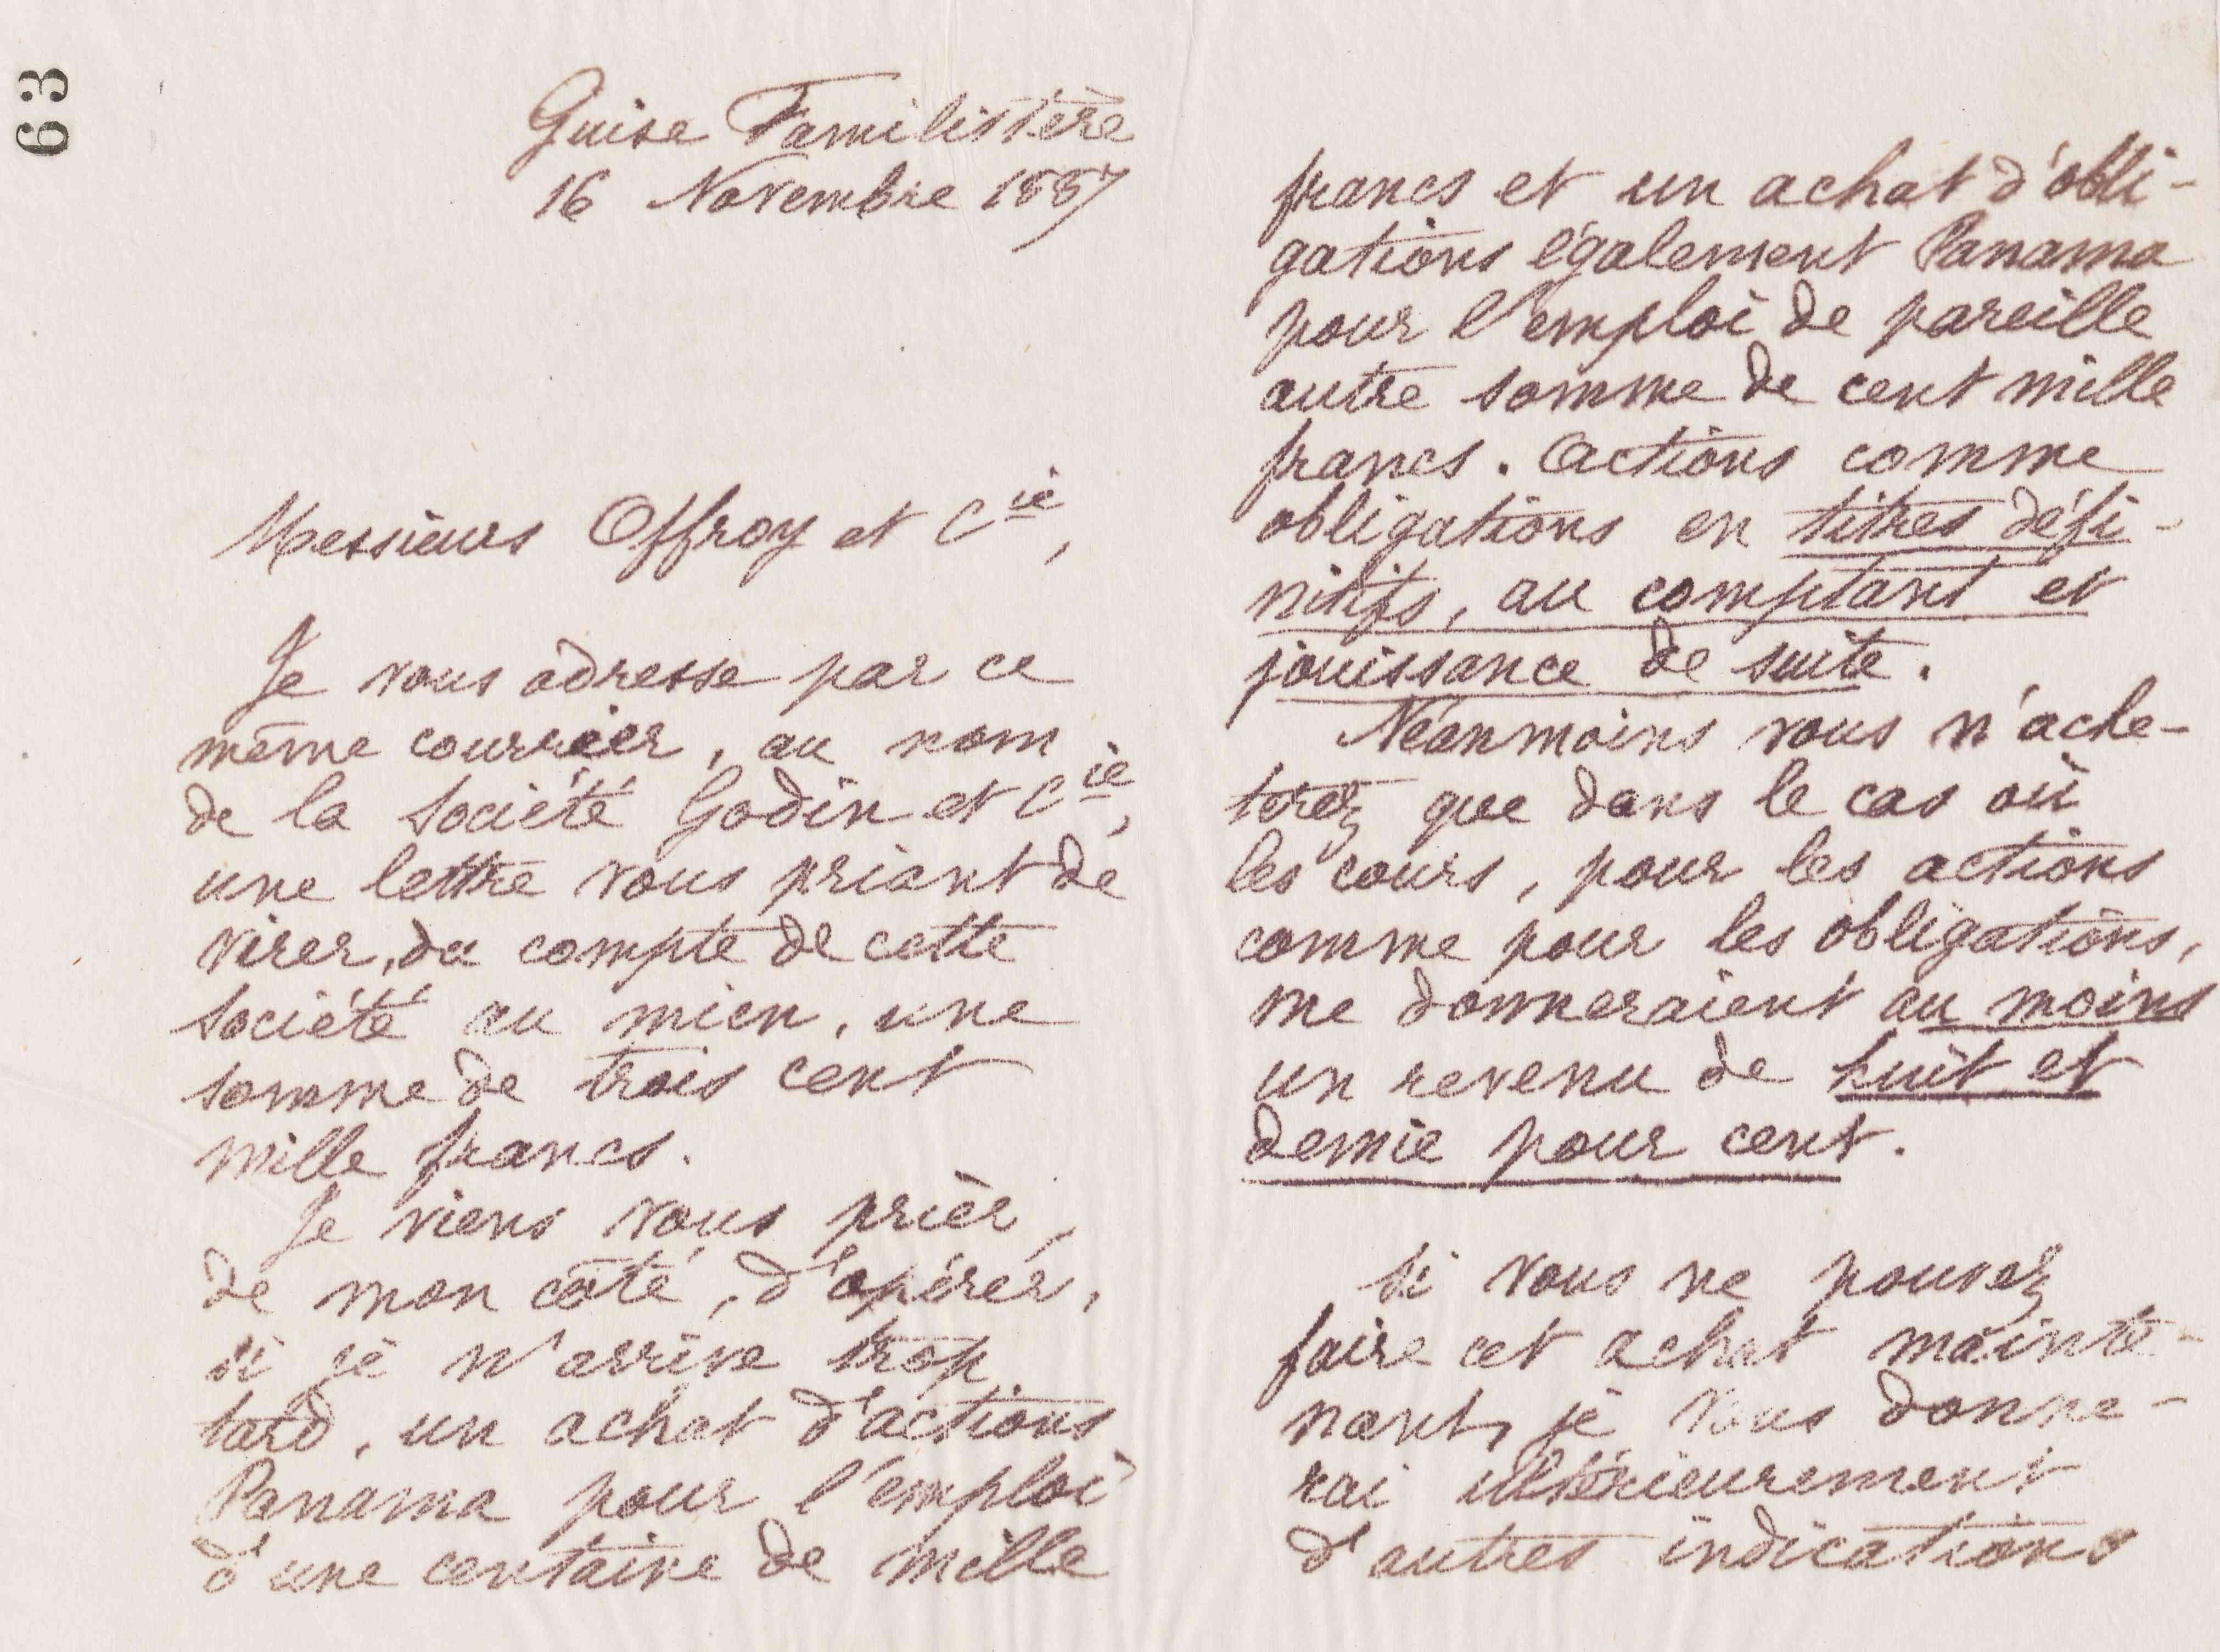 63
Guise Familistère
16 Novembre 1887
Messieurs Offroy et Cie,
Je vous adresse par ce
même courrier, au nom
de la Société Godin et Cie,
une lettre vous priant de
virer, du compte de cette
Société au mien, une
somme de trois cent
mille francs.
Je viens vous prier,
de mon côté, d'opérer,
si je n'arrive trop
tard, un achat d'actions
Panama pour l'emploi
d'une centaine de mille
francs et un achat d'obli-
gations également Panama
pour l'emploi de pareille
autre somme de cent mille
francs. Actions comme
obligations en titres défi-
nitifs, au comptant et
jouissance de suite.
Néanmoins vous n'ache-
terez que dans le cas où
les cours, pour les actions
comme pour les obligations,
me donneraient au moins
un revenu de huit et
demie pour cent.
Si vous ne pouvez
faire cet achat mainte-
nant, je vous donne-
rai ultérieurement
d'autres indications